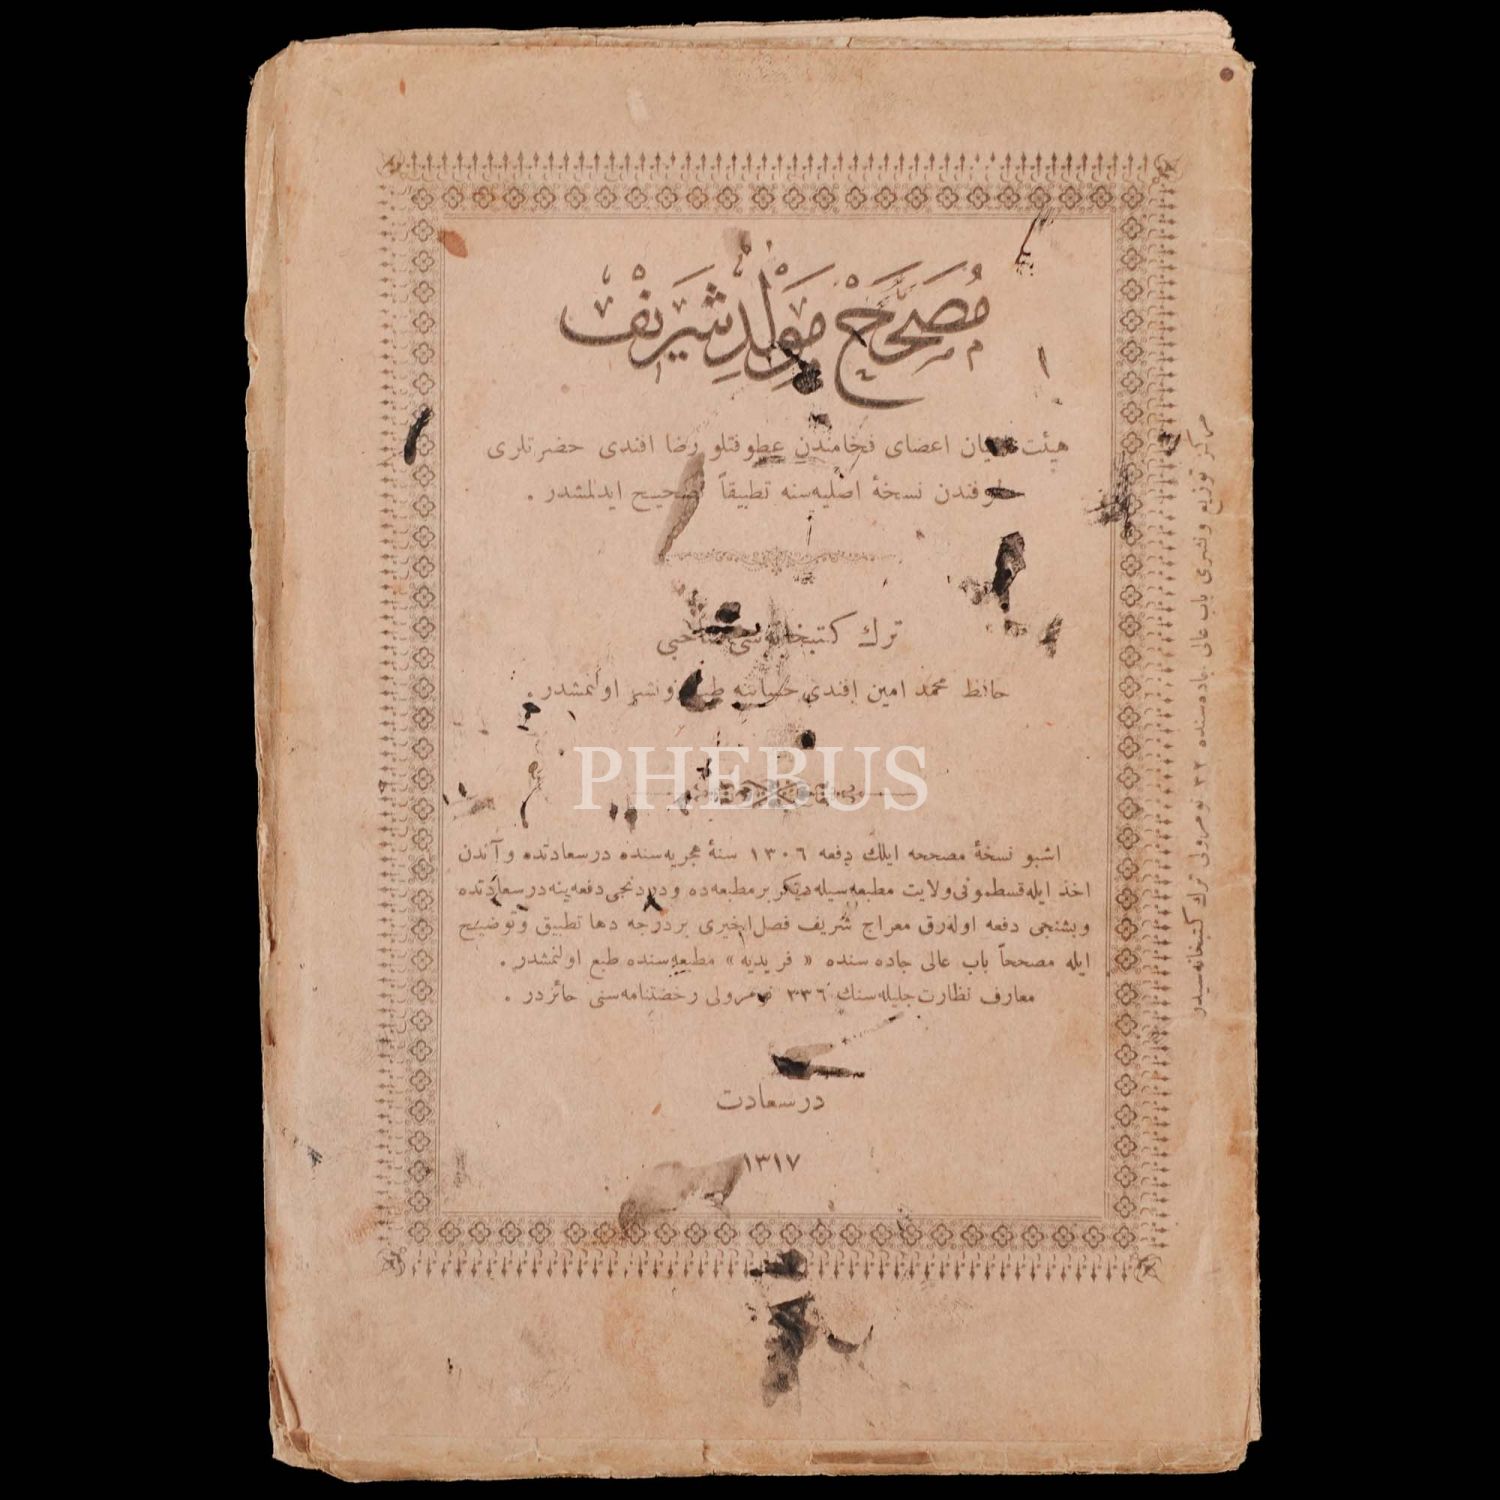 مُصَحَّحْ مَوْلِدِ شَرِيفْ
هيئت اعيان اعضاى فخامندن عطوفتلو رضا افندى حضرتلرى
طرفندن نسخۀ اصليه‌سنه تطبيقاً تصحيح ايدلمشدر .
ترك كتبخانه‌سى صاحبى
حافظ محمد امين افندى حسابنه طبع و نشر اولنمشدر .
PHEBUS
اشبو نسخۀ مصححه ايلك دفعه ١٣٠٦ سنۀ هجريه‌سنده درسعادتده و آندن
اخذ ايله قسطمونى ولايت مطبعه‌سيله ديكر بر مطبعه‌ده و دردنجى دفعه ينه درسعادتده
وبشنجى دفعه اوله‌رق معراج شريف فصل اخيرى بر درجه دها تطبيق و توضيح
ايله مصححاً باب عالى جاده‌سنده « فريديه » مطبعه‌سنده طبع اولنمشدر .
معارف نظارت جليله‌سنك ٣٣٦ نومرولى رخصتنامه‌سنى حائزدر .
درسعادت
١٣١٧
مركز توزيع و نشرى باب عالى جاده‌سنده ٣٢ نومرولى ترك كتبخانه‌سيدر